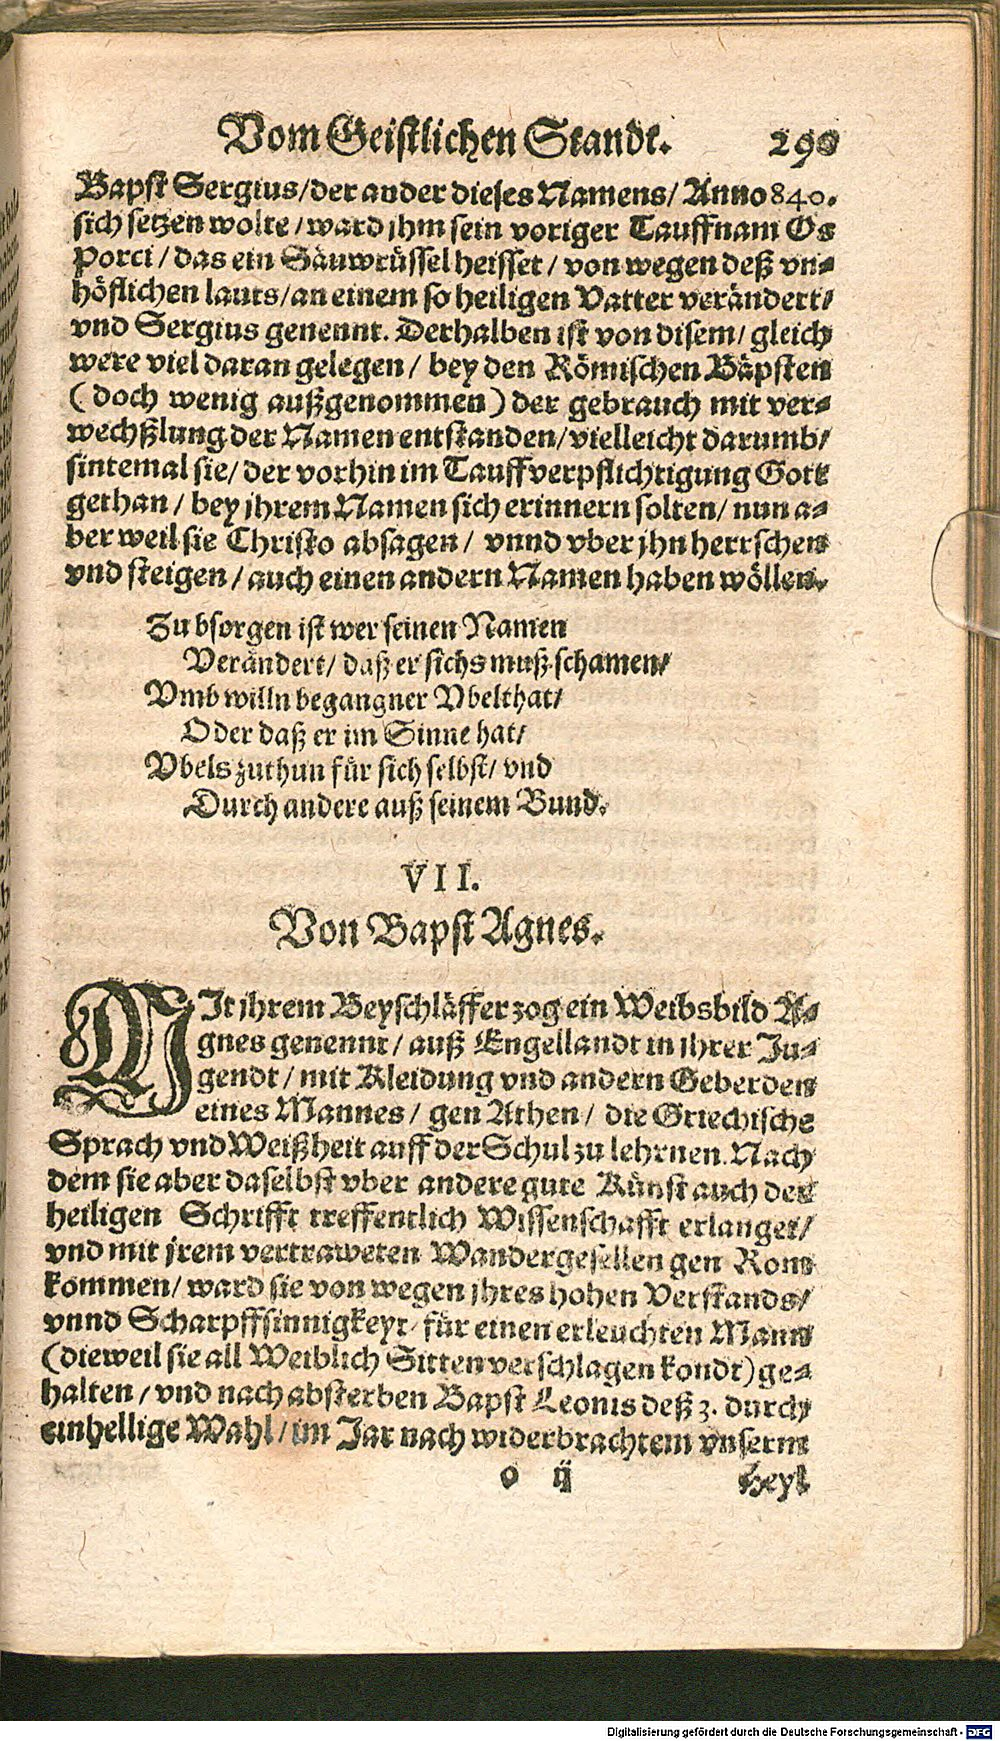 Vom Geistlichen Standt. 290
Bapst Sergius/der ander dieses Namens/ Anno 840.
sich setzen wolte/ward jhm sein voriger Tauffnam Os
Porci/das ein Säuwrüssel heisset/von wegen deß vn-
höflichen lauts/an einem so heiligen Vatter verändert/
vnd Sergius genennt. Derhalben ist von disem/gleich
were viel daran gelegen/bey den Römischen Bäpsten
(doch wenig außgenommen) der gebrauch mit ver-
wechßlung der Namen entstanden/vielleicht darumb/
sintemal sie/der vorhin im Tauff verpflichtigung Gott
gethan/bey jhrem Namen sich erinnern solten/nun a-
ber weil sie Christo absagen/vnnd vber jhn herrschen
vnd steigen/auch einen andern Namen haben wöllen.
Zu bsorgen ist wer seinen Namen
Verändert/daß er sichs muß schamen/
Vmb willn begangner Vbelthat/
Oder daß er im Sinne hat/
Vbels zuthun für sich selbst/vnd
Durch andere auß seinem Bund.
VII.
Von Bapst Agnes.
MJt jhrem Beyschläffer zog ein Weibsbild A-
gnes genennt/auß Engellandt in jhrer Ju-
gendt/mit Kleidung vnd andern Geberden
eines Mannes/gen Athen/die Griechische
Sprach vnd Weißheit auff der Schul zu lehrnen. Nach
dem sie aber daselbst vber andere gute Künst auch der
heiligen Schrifft treffentlich Wissenschafft erlanget/
vnd mit jrem vertraweten Wandergesellen gen Rom
kommen/ward sie von wegen jhres hohen Verstands/
vnnd Scharpffsinnigkeyt/für einen erleuchten Mann
(dieweil sie all Weiblich Sitten verschlagen kondt) ge-
halten/vnd nach absterben Bapst Leonis deß 3. durch
einhellige Wahl/im Jar nach widerbrachtem vnserm
o ij Heyl
Digitalisierung gefördert durch die Deutsche Forschungsgemeinschaft - DFG